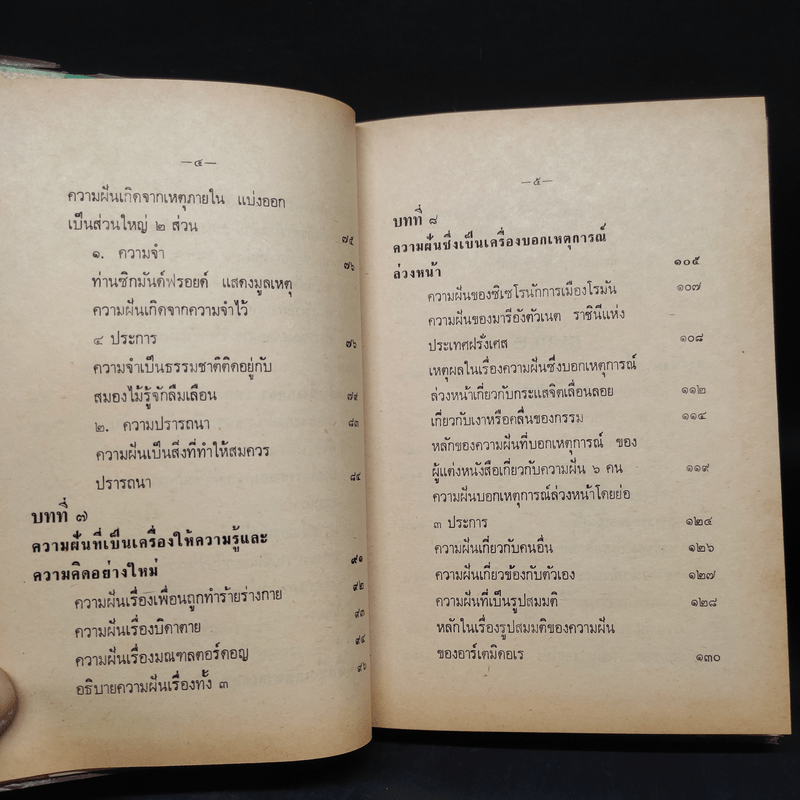 —๔—
ความฝันเกิดจากเหตุภายใน แบ่งออก
เป็นส่วนใหญ่ ๒ ส่วน ๗๕
๑. ความจำ ๗๖
ท่านซิกมันด์ฟรอยด์ แสดงมูลเหตุ
ความฝันเกิดจากความจำไว้
๔ ประการ ๗๖
ความจำเป็นธรรมชาติติดอยู่กับ
สมองไม้รู้จักลืมเลือน ๗๙
๒. ความปรารถนา ๘๓
ความฝันเป็นสิ่งที่ทำให้สมควร
ปรารถนา ๘๔
บทที่ ๗
ความฝันที่เป็นเครื่องให้ความรู้และ
ความคิดอย่างใหม่ ๙๑
ความฝันเรื่องเพื่อนถูกทำร้ายร่างกาย ๙๒
ความฝันเรื่องบิดาตาย ๙๓
ความฝันเรื่องมณฑลตอร์คอญ ๙๔
อธิบายความฝันเรื่องทั้ง ๓ ๙๖
—๕—
บทที่ ๘
ความฝันซึ่งเป็นเครื่องบอกเหตุการณ์
ล่วงหน้า ๑๐๕
ความฝันของซิเซโรนักการเมืองโรมัน ๑๐๗
ความฝันของมารีอังตัวเนต ราชินีแห่ง
ประเทศฝรั่งเศส ๑๐๘
เหตุผลในเรื่องความฝันซึ่งบอกเหตุการณ์
ล่วงหน้าเกี่ยวกับกระแสจิตเลื่อนลอย ๑๑๒
เกี่ยวกับเงาหรือคลื่นของกรรม ๑๑๔
หลักของความฝันที่บอกเหตุการณ์ ของ
ผู้แต่งหนังสือเกี่ยวกับความฝัน ๖ คน ๑๑๙
ความฝันบอกเหตุการณ์ล่วงหน้าโดยย่อ
๓ ประการ ๑๒๔
ความฝันเกี่ยวกับคนอื่น ๑๒๖
ความฝันเกี่ยวข้องกับตัวเอง ๑๒๗
ความฝันที่เป็นรูปสมมติ ๑๒๘
หลักในเรื่องรูปสมมติของความฝัน
ของอาร์เตมิดอเร ๑๓๐